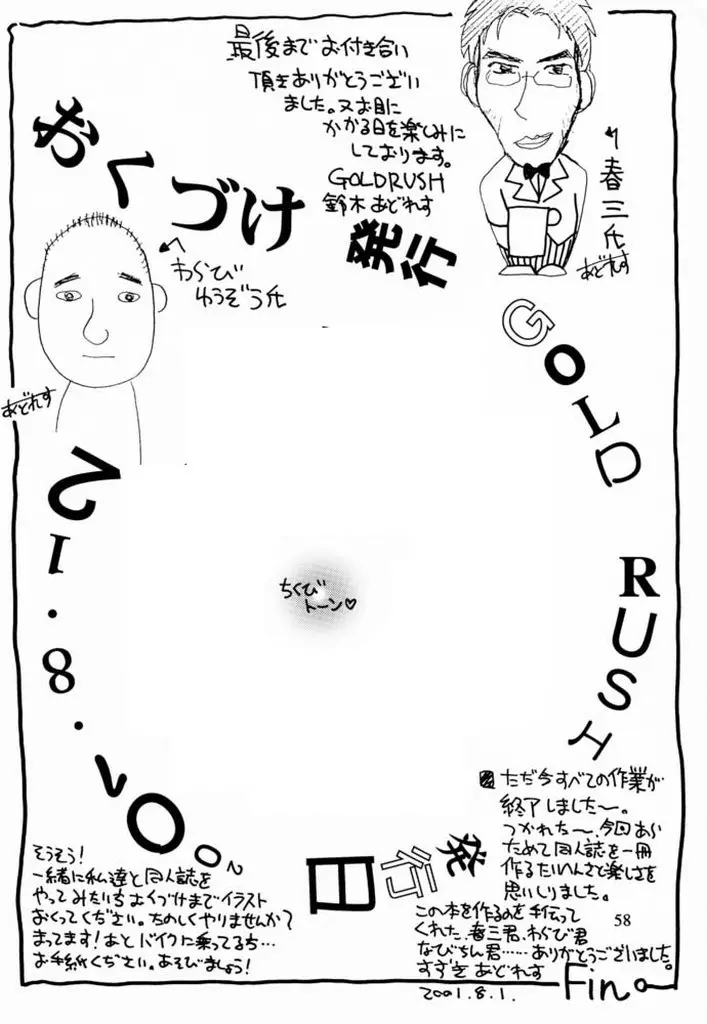 最後までお付き合い
頂きありがとうござい
ました。又お目に
かかる日を楽しみに
しております。
GOLDRUSH
鈴木あどれす
おくづけ
発行
春三氏
あどれす
わらび
ゆうぞう氏
あどれす
GOLD RUSH
発行日
2001.8.12
ちくび
トーン♡
そうそう!
一緒に私達と同人誌を
やってみたいちおくづけまでイラスト
おくってください。たのしくやりませんか?
まってます!あとバイクに乗ってるち…
お手紙ください。あそびましょう!
ただ今すべての作業が
終了しました〜。
つかれた〜、今回あら
ためて同人誌を一冊
作るたいへんさと楽しさを
思いしりました。
58
この本を作るのを手伝って
くれた、春三君、わらび君
なびちん君……ありがとうございました。
すずきあどれす
2001.8.1.
Fin。